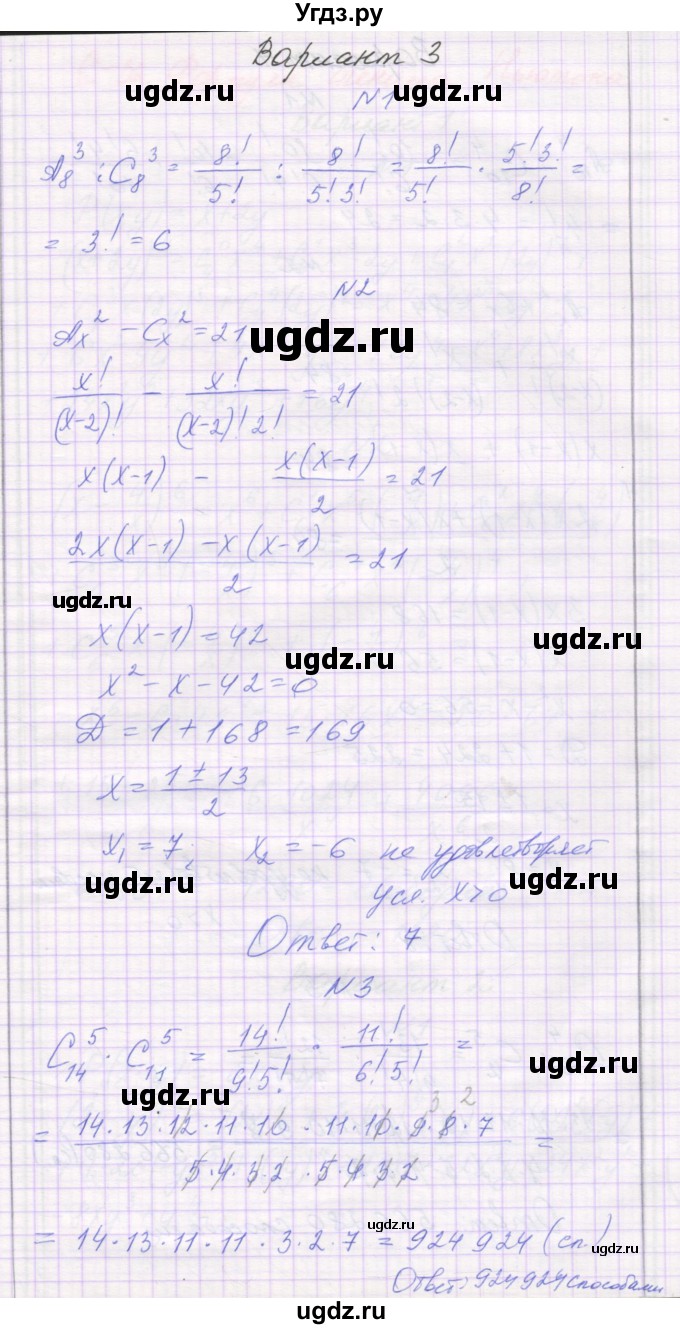 Угдз.ру
Вариант 3
ugdz.ru ugdz.ru
N1
A₈³ : C₈³ = 8!/5! : 8!/(5!3!) = 8!/5! · 5!3!/8! =
ugdz.ru ugdz.ru
= 3! = 6
N2
Aₓ² − Cₓ² = 21
ugdz.ru
x!/(x-2)! − x!/((x-2)!2!) = 21
x(x-1) − x(x-1)/2 = 21
(2x(x-1) − x(x-1))/2 = 21
ugdz.ru
x(x-1) = 42
ugdz.ru
ugdz.ru
x² − x − 42 = 0
D = 1 + 168 = 169
x = (1 ± 13)/2
x₁ = 7; x₂ = −6 не удовлетворяет
ugdz.ru ugdz.ru
усл. x>0
Ответ: 7
N3
C₁₄⁵ · C₁₁⁵ = 14!/(9!5!) · 11!/(6!5!) =
ugdz.ru ugdz.ru
3 2
= (14·13·12·11·10 · 11·10·9·8·7)/(5·4·3·2 · 5·4·3·2) =
ugdz.ru
= 14·13·11·11·3·2·7 = 924 924 (сп.)
ugdz.ru
Ответ: 924 924 способами
ugdz.ru